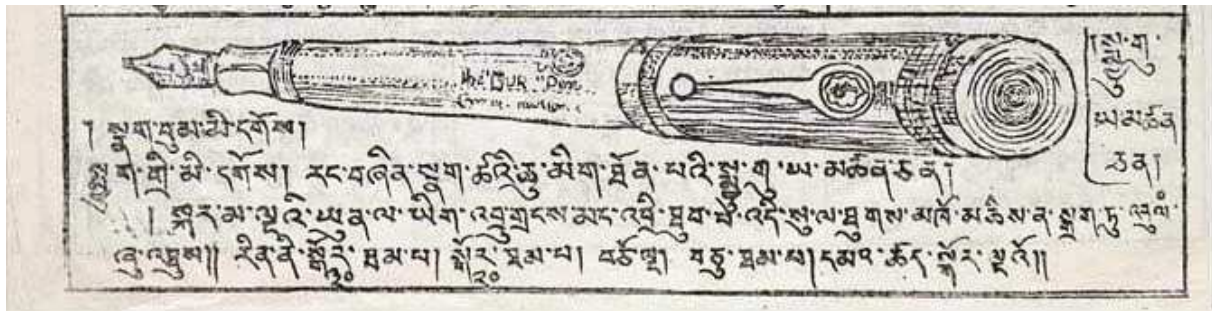 "OUR" Pen
། སྨྱུ་གུ་
ཡ་མཚན
ཅན།
། སྣག་བུམ་མི་དགོས།
གྲི་མི་དགོས། རང་བཞིན་སྣག་ཚའི་ཆུ་མིག་ཐོན་པའི་སྨྱུ་གུ་ཡ་མཚན་ཅན།
། སྐར་མ་ལྔའི་ཡུན་ལ་ཡིག་འབྲུ་གྲངས་མང་འབྲི་ཐུབ་པ་འདི་སུ་ལ་ཐུགས་མཁོ་མཆིས་ན་སྲག་ཏུ་འབུལ་
ཞུ་འཐུས༎ རིན་ནི་སྒོར་༣༠ ཐམ་པ། སྒོར་༢༠ ཐམ་པ། བཅོ་ལྔ། བཅུ་ཐམ་པ། དམའ་ཚད་སྒོར་ལྔའོ༎